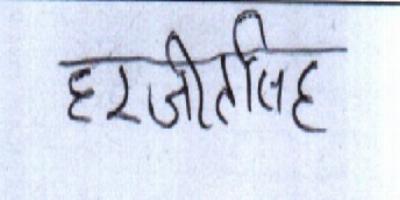 हरजीतसिह